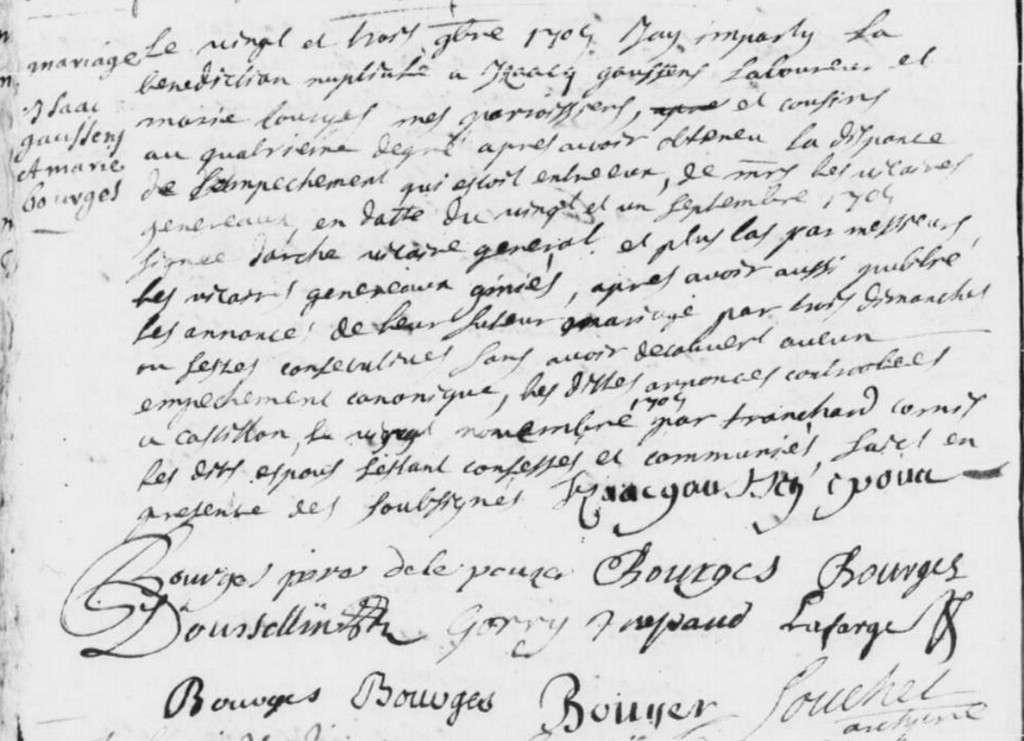 mariage
Isaac
gaussens
et marie
bourges
Le vingt et trois 9bre 1705 Jay imparty La
benediction nuptialle a Izaacq gaussens Laboureur et
marie bourges mes parroissiens, et cousins
au quatrieme degré apres avoir obteneu La dispance
de Lempechement qui estoit entre eux, de mrs les vicaires
genereaux, en datte du vingt et un septembre 1705
signée darche vicaire general et plus bas par messieurs
les vicaires genereaux apres avoir aussi publié
les annonces de leur futeur mariage par trois dimanches
ou festes consecutives sans avoir decouvert aucun
empechement canonique, les dittes annonces controolees
a castillon, le novembre 1705 par tranchard comis
les dits espous sestant confesses et communiés, faict en
presence des soubsignés Izaac gaussens epoux
Bourges pere de Bourges Bourges
Gorry Lafarge
Bourges Bourges Bouyer Souchet